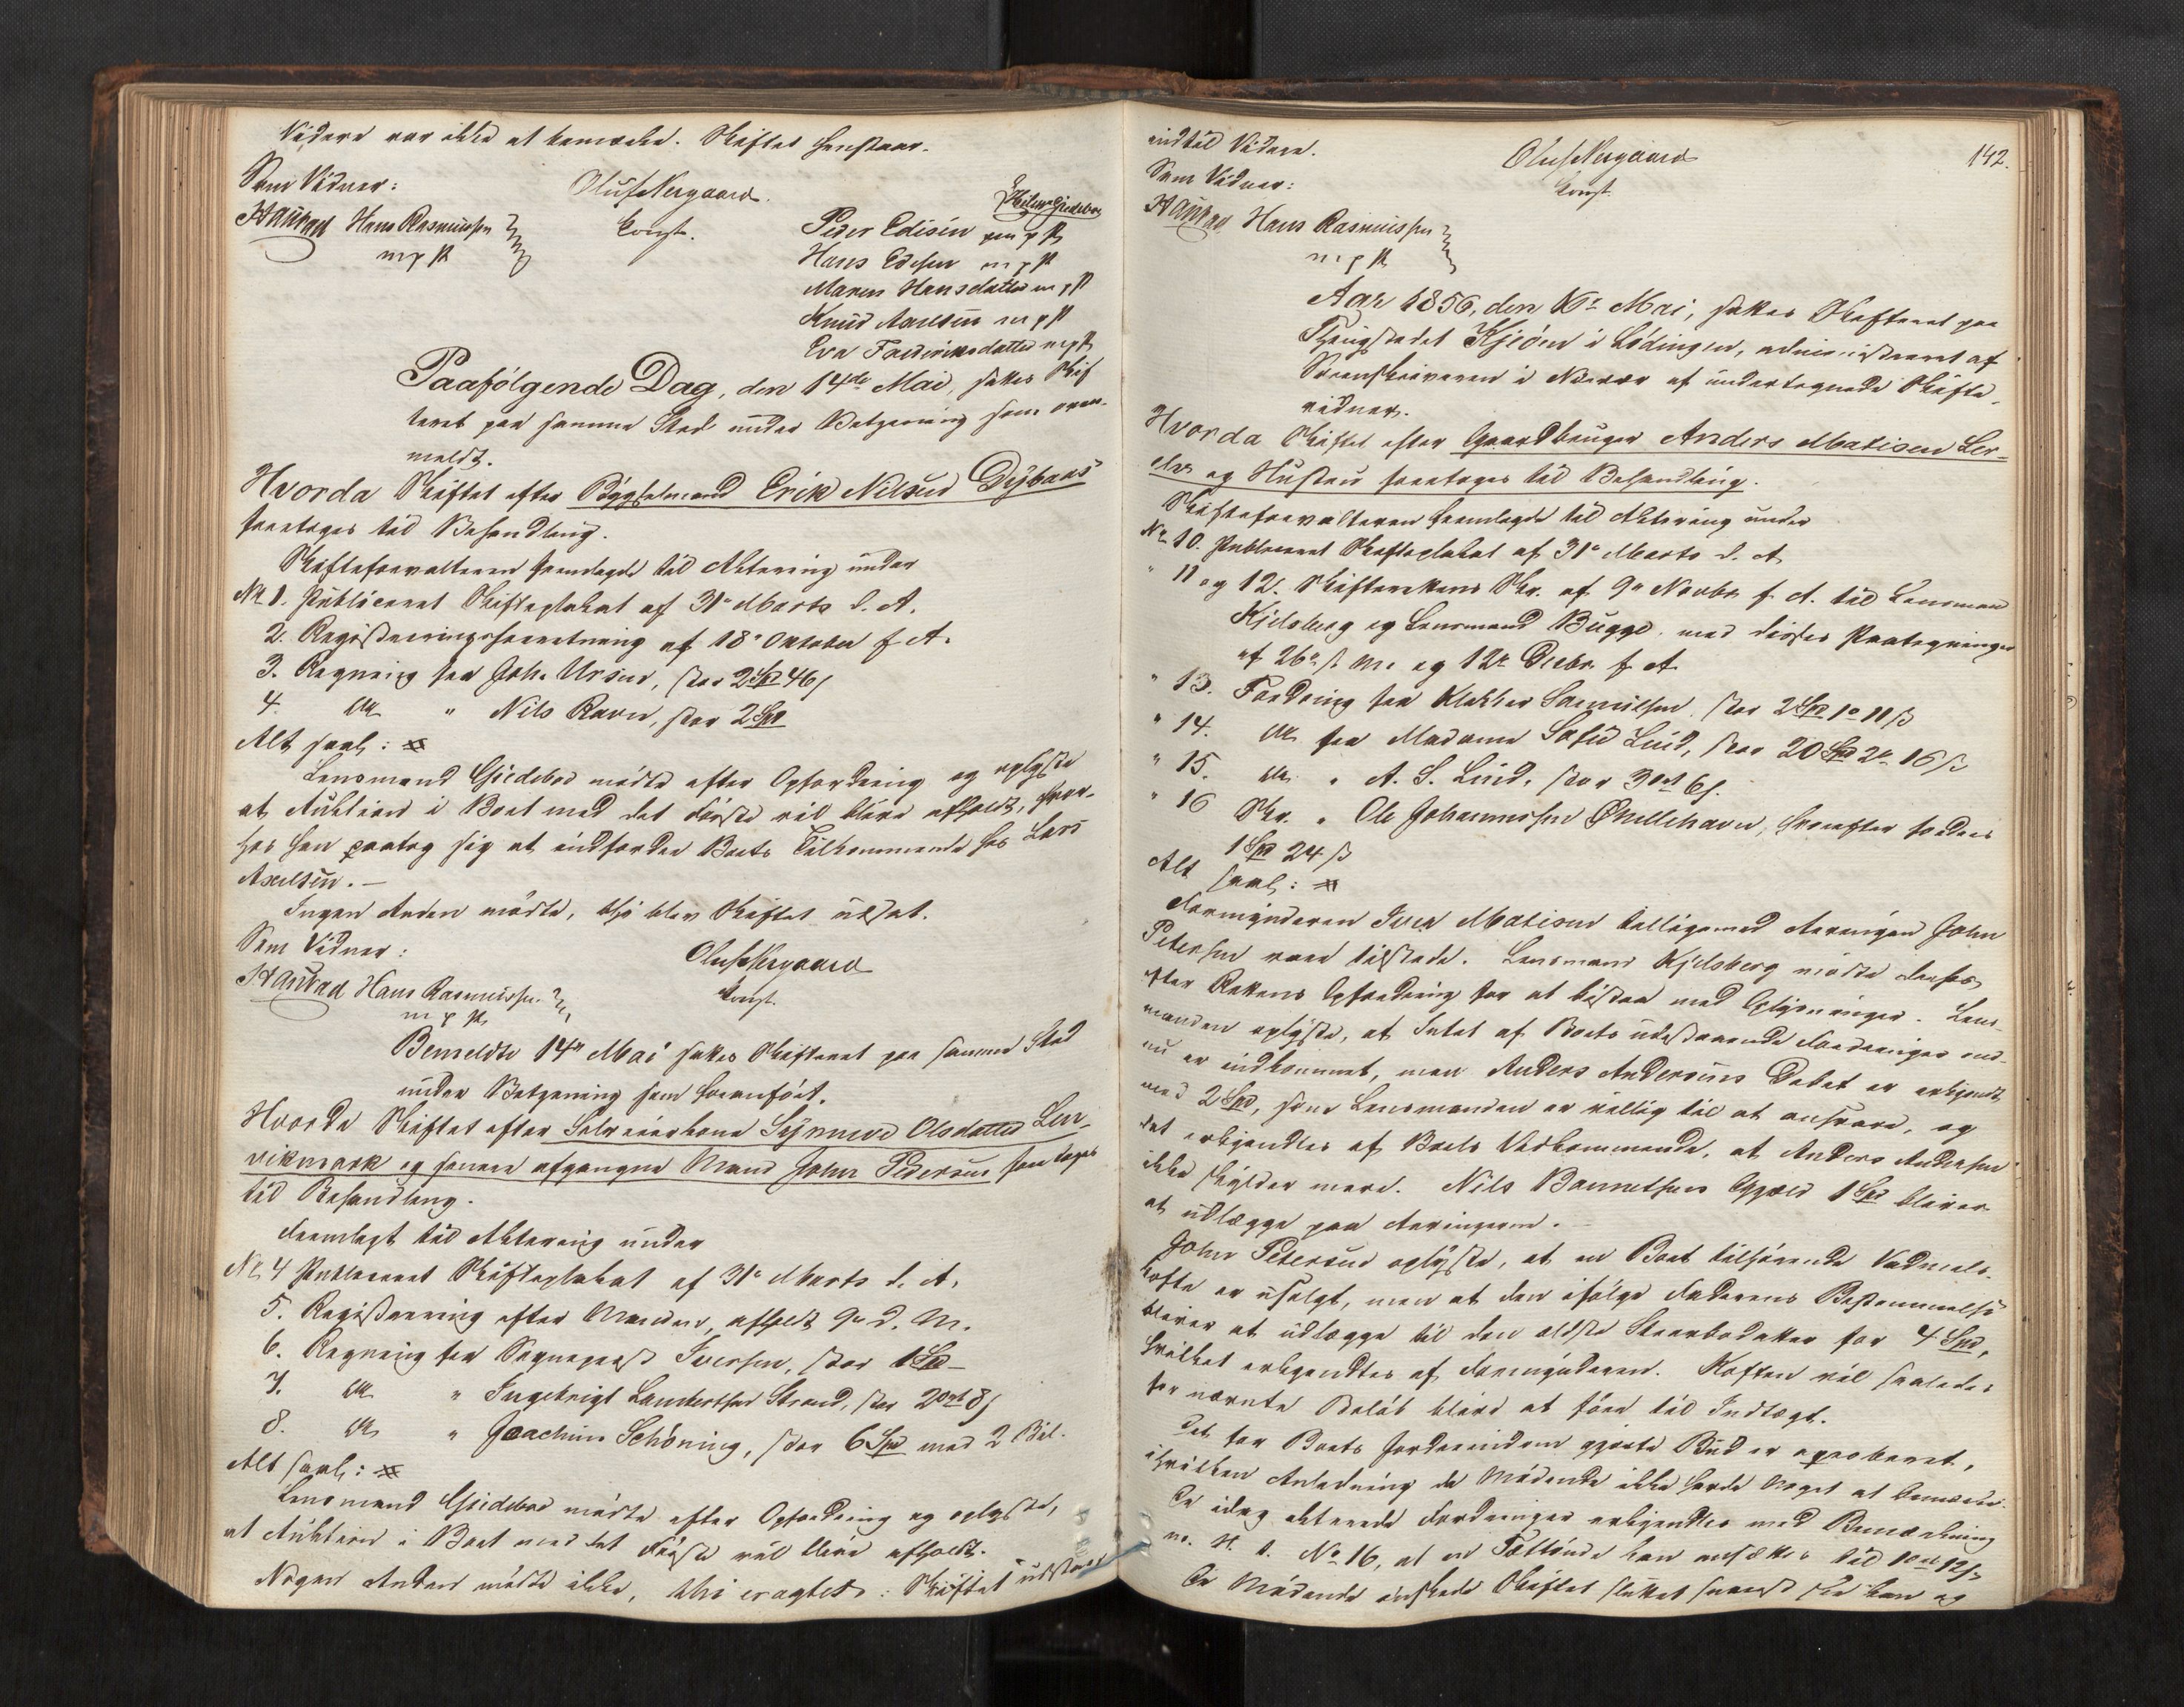 Videre var ikke at bemærke. Skiftet henstaar.
Som Vidner:
Olufs Nergaard.
Const.
Haurad Hans Rasmussen
m p P
Giæbloe
Peder Edisen m p P
Hans Edisen m p P
Maren Hansdatter m p P
Knud Axelsen m p P
Eva Frederiksdatter m p P
Paafölgende Dag, den 14de Mai, sattes Skif
teret paa samme Sted under Betjening som oven-
meldt.
Hvorda Skiftet efter Bygselmand Erik Nilsen Dybaas
foretoges til Behandling.
Skifteforvalteren fremlagde til Aktering under
No 1. Publiceret Skifteplakat af 31e Marts d. A.
2. Registreringsforretning af 18e Oktober f. A.
3. Regning fra Joh. Ursin, stor 2 Spd 46 s
4. do " Nils Ravn, stor 2 Spd
Alt saal:
Lensmand Giæbloe mödte efter Opfordring og oplyste
at Auktion i Boet med det Förste vil blive afholdt, hvor-
hos han paatog sig at indfordre Boets Tilkommende hos Lars
Axelsen.—
Ingen Anden mödte, thi blev Skiftet udsat.
Som Vidner:
Olufs Nergaard
Const.
Haurad Hans Rasmussen
m p P
Bemeldte 14de Mai sattes Skifteret paa samme Sted
under Betjening som foranfört.
Hvorda Skiftet efter Selveierkone Synneve Olsdatter Ler-
vikmark og hennes afgangne Mand John Pedersen foretoges
til Behandling.
Fremlagt til Aktering under
No 4 Publiceret Skifteplakat af 31e Marts d. A.
5. Registrering efter Manden, afholdt 9de d. M.
6. Regning fra Sogneprest Iversen, stor 1 Spd
7. do " Ingebrigt Lambertsen Strand, stor 2 ort 8 s
8. do " Joachim Schöning, stor 6 Spd med 2 Bil.
Alt saal:
Lensmand Giæbloe mödte efter Opfordring og oplyste,
at Auktion i Boet med det Förste vil blive afholdt.
Nogen Anden mödte ikke, thi eragtet: Skiftet udstaar
indtil Videre.
Olufs Nergaard
Const.
142.
Som Vidner:
Haurad Hans Rasmussen
m p P
Aar 1856, den 16e Mai, sattes Skifteret paa
Thingstedet Kjeöen i Lödingen, administreret af
Sorenskriveren i Nærvær af undertegnede Skifte-
vidner.
Hvorda Skiftet efter Gaardbruger Anders Matisen Ler-
og Hustru foretoges til Behandling.
Skifteforvalteren fremlagde til Aktering under
No 10. Publiceret Skifteplakat af 31e Marts d. A.
" 11 og 12. Skifterettens Skr. af 9de Novbr f. A. til Lensmand
Kjelsberg og Lensmand Bugge, med disses Paategninger
af 26de s. M. og 12te Decbr. f. A.
" 13. Fordring fra Samuelsen, stor 2 Spd 1 o 11 ß
" 14. do fra Madame Sofie Lund, stor 20 Spd 2 o 16 ß
" 15. do " A. S. Lund, stor 3 ort 6 s.
" 16 Skr. " Ole Johannessen hvorefter fordres
1 Spd 24 ß
Alt saal:
Formynderen Iver Matisen tilligemed Arvingen John
Petersen vare tilstede. Lensmand Kjelsberg mödte derhos
efter Rettens Opfordring for at bistaa med Oplysninger. Lens-
manden oplyste, at Intet af Boets udestaaende Fordringer end-
nu er indkommet, men Anders Andersens Debet er erkjendt
med 2 Spd, som Lensmanden er villig til at ansvare, og
det erkjendtes af Boets Vedkommende, at Anders Andersen
ikke skylder mere. Nils Gjæld 1 Spd bliver
at udlægge paa Arvingerne.—
John Petersen oplyste, at en Boet tilhörende Vadmels-
kofte er usolgt, men at den ifölge Faderens Bestemmelse
bliver at udlægge til den ældste Steerbodatter for 4 Spd,
hvilket erkjendtes af Formynderen. Koften vil saaledes
for nævnte Belöb blive at före til Indtægt.
Det for Boets Jordeiendom gjorte Bud er approberet,
i hvilken Anledning de Mödende ikke havde Noget at bemærke.
De idag akterede Fordringer erkjendtes med Bemærkning
m. H. t. No 16, at en Tottönde kan ansættes til 1 ort 12 s.
De Mödende önskede Skiftet sluttet snarest skee kan og